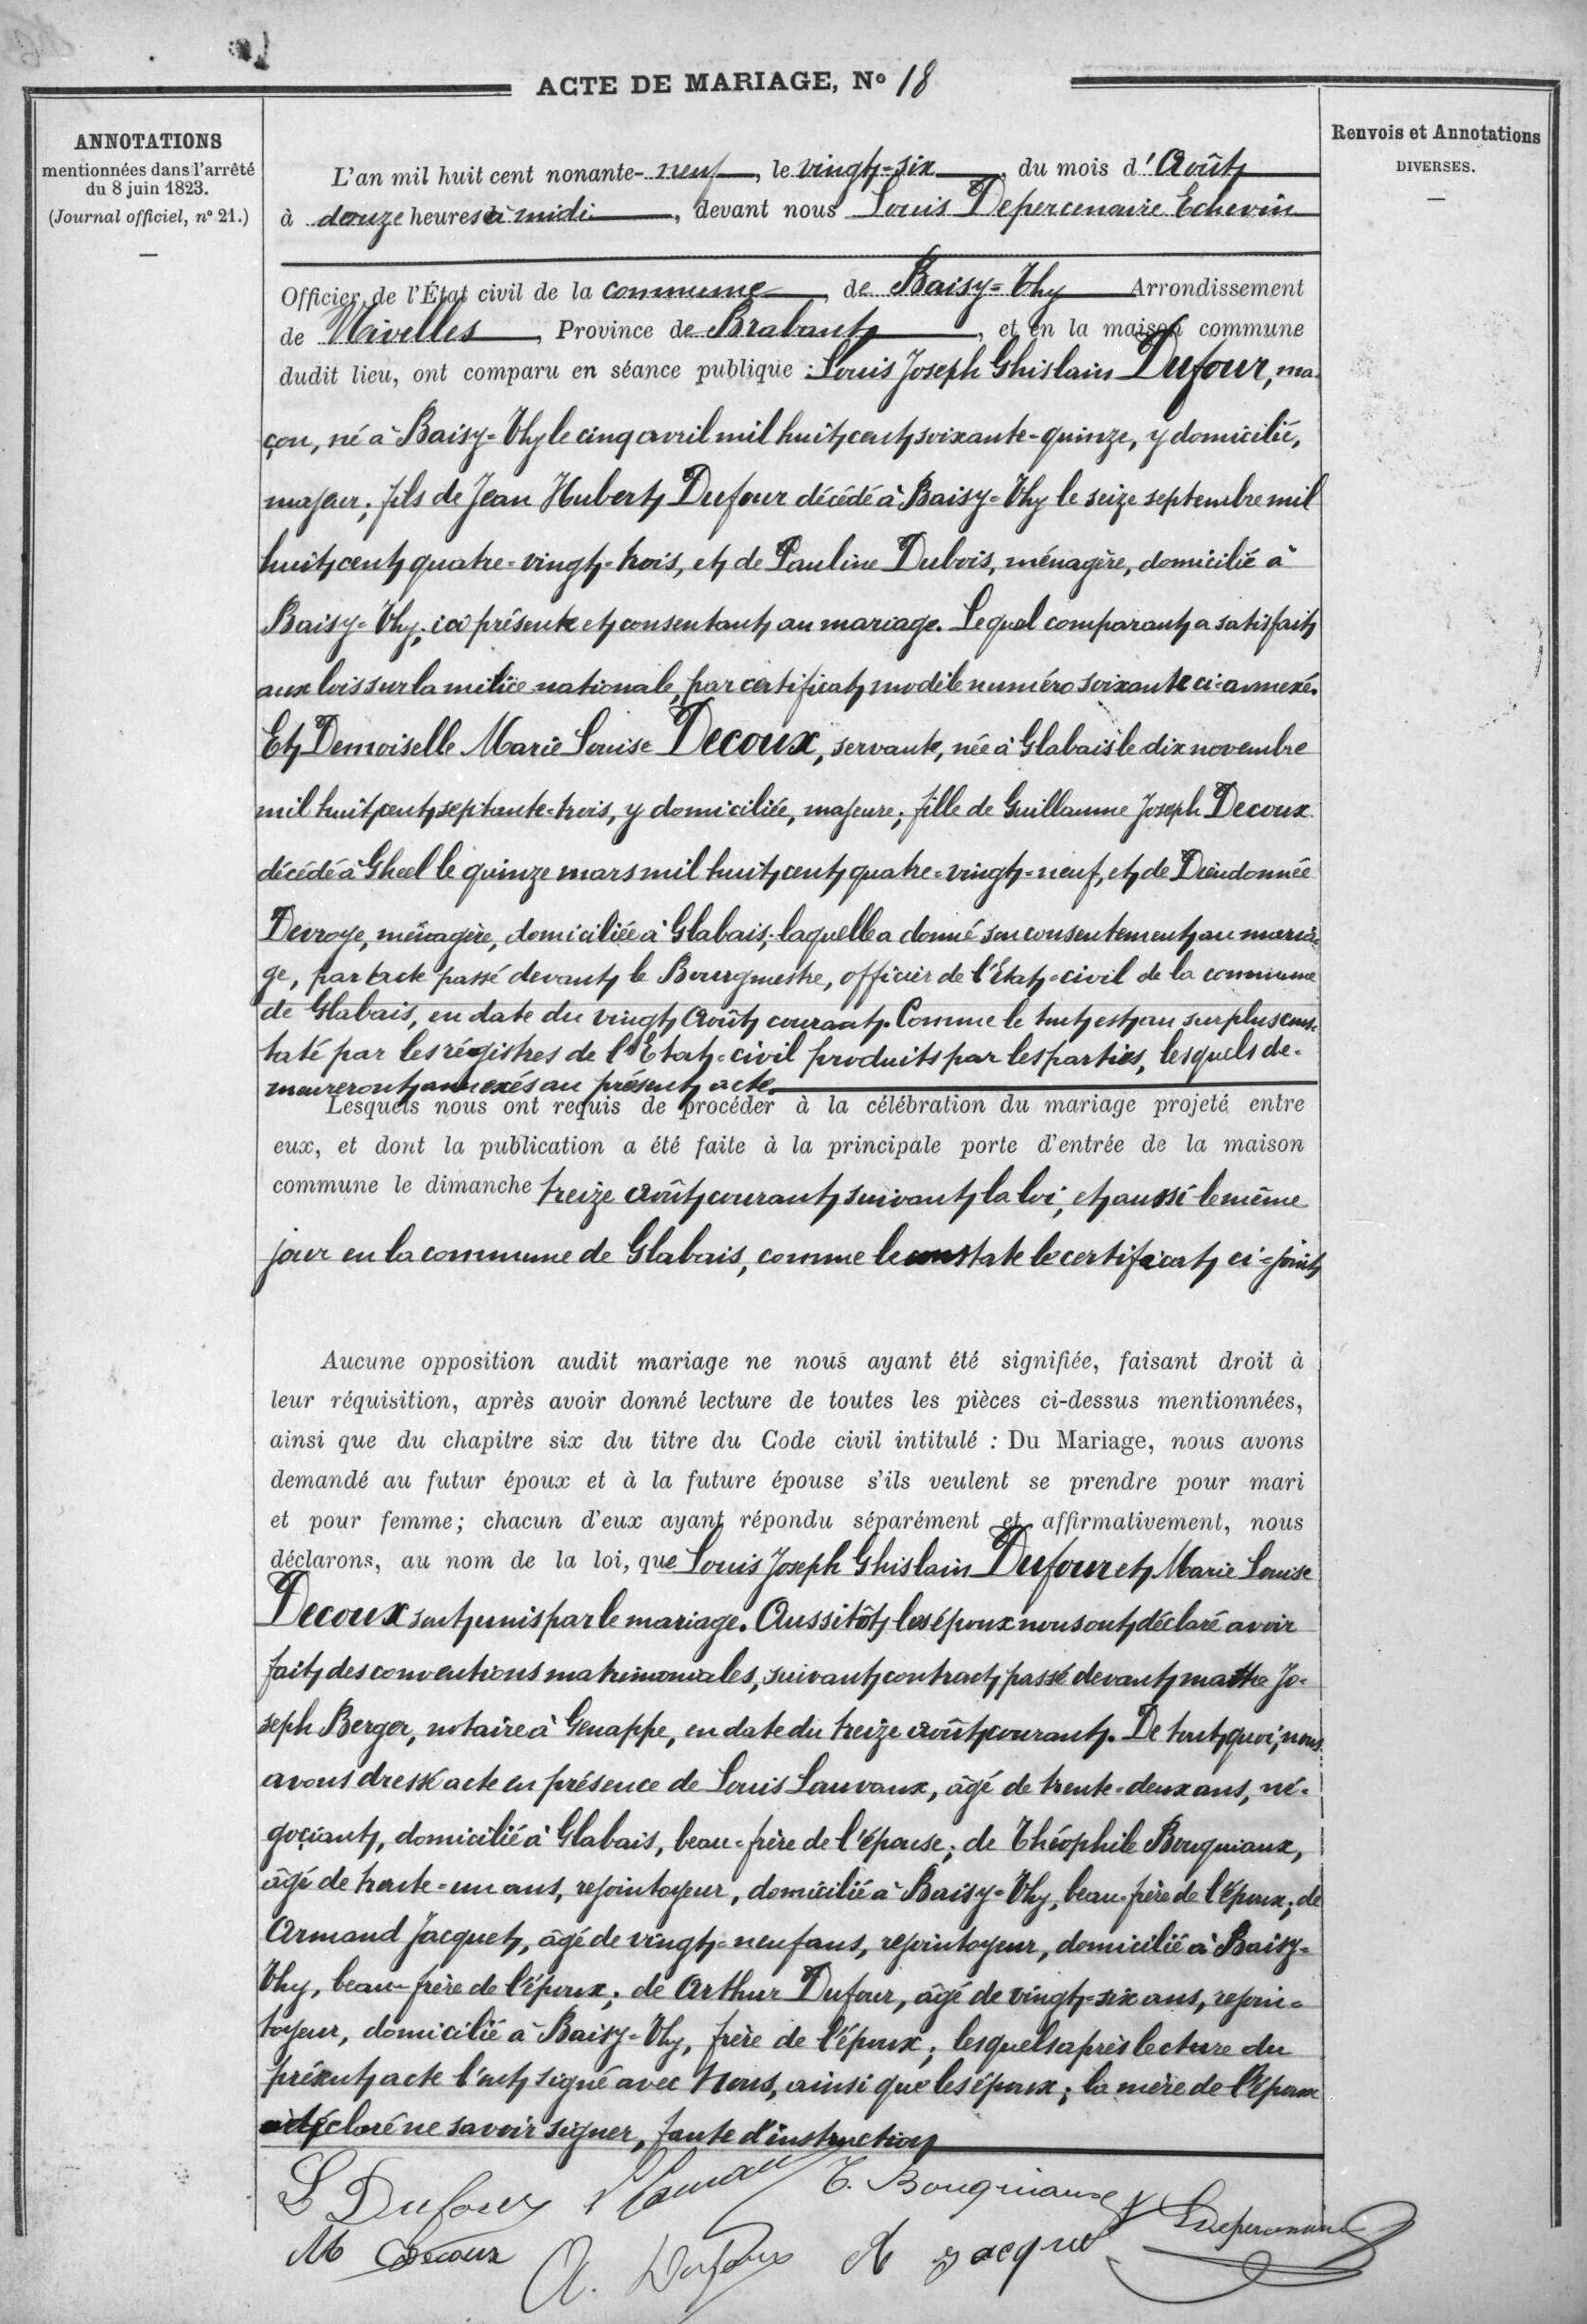 ACTE DE MARIAGE, Nº 18
ANNOTATIONS
mentionnées dans l'arrêté
du 8 juin 1823.
(Journal officiel, nº 21.)
Renvois et Annotations
DIVERSES.
L'an mil huit cent nonante- neuf, le vingt-six, du mois d'Août
à douze heures à midi, devant nous Louis Depercenaire Echevin
Officier de l'État civil de la commune de Baisy-Thy Arrondissement
de Nivelles, Province de Brabant, et en la maison commune
dudit lieu, ont comparu en séance publique : Louis Joseph Ghislain Dufour, ma-
çon, né à Baisy-Thy le cinq avril mil huit cent soixante-quinze, y domicilié,
majeur; fils de Jean Hubert Dufour décédé à Baisy-Thy le seize septembre mil
huit cent quatre-vingt-trois, et de Pauline Dubois, ménagère, domicilié à
Baisy-Thy; ici présente et consentant au mariage. Lequel comparant a satisfait
aux lois sur la milice nationale, par certificat modèle numéro soixante ci-annexé.
Et Demoiselle Marie Louise Decoux, servante, née à Glabais le dix novembre
mil huit cent septante-trois, y domiciliée, majeure; fille de Guillaume Joseph Decoux
décédé à Gheel le quinze mars mil huit cent quatre-vingt-neuf, et de Dieudonnée
Devroye, ménagère, domiciliée à Glabais; laquelle a donné son consentement au maria-
ge, par acte passé devant le Bourgmestre, officier de l'Etat-civil de la commune
de Glabais, en date du vingt Août courant. Comme le tout est au surplus cons-
taté par les régistres de l'Etat-civil produits par les parties, lesquels de-
meureront annexés au présent acte.
Lesquels nous ont requis de procéder à la célébration du mariage projeté entre
eux, et dont la publication a été faite à la principale porte d'entrée de la maison
commune le dimanche treize Août courant suivant la loi, et aussi le même
jour en la commune de Glabais, comme le constate le certificat ci-joint
Aucune opposition audit mariage ne nous ayant été signifiée, faisant droit à
leur réquisition, après avoir donné lecture de toutes les pièces ci-dessus mentionnées,
ainsi que du chapitre six du titre du Code civil intitulé : Du Mariage, nous avons
demandé au futur époux et à la future épouse s'ils veulent se prendre pour mari
et pour femme; chacun d'eux ayant répondu séparément et affirmativement, nous
déclarons, au nom de la loi, que Louis Joseph Ghislain Dufour et Marie Louise
Decoux sont unis par le mariage. Aussitôt les époux nous ont déclaré avoir
fait des conventions matrimoniales, suivant contract passé devant maître Jo-
seph Berger, notaire à Genappe, en date du treize août courant. De tout quoi, nous
avons dressé acte en présence de Louis Lauvaux, âgé de trente-deux ans, né-
goçiant, domicilié à Glabais, beau-frère de l'épouse; de Théophile Bouquiaux,
âgé de trente-un ans, rejointoyeur, domicilié à Baisy-Thy, beau-frère de l'époux; de
Armand Jacquet, âgé de vingt-neuf ans, rejointoyeur, domicilié à Baisy-
Thy, beau-frère de l'époux; de Arthur Dufour, âgé de vingt-six ans, rejoin-
toyeur, domicilié à Baisy-Thy, frère de l'époux; lesquels après lecture du
présent acte l'ont signé avec Nous, ainsi que les époux; la mère de l'époux
a déclaré ne savoir signer, faute d'instruction
L Dufour L Lauvaux T. Bouquiaux LDepercenaire
M Decoux A. Dufour A Jacquet